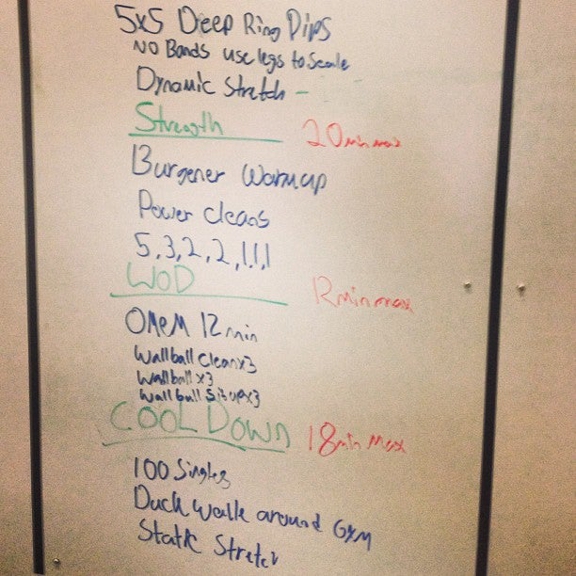 5x5 Deep Ring Dips
No Bands use legs to Scale
Dynamic Stretch -
Strength 20 min max
Burgener Warmup
Power cleans
5,3,2,2,1,1,1
WOD 12 min max
OMEM 12 min
Wallball Clean x3
Wallball x3
Wallball Situp x3
COOL DOWN 18 min Max
100 Singles
Duck Walk around GYM
Static Stretch